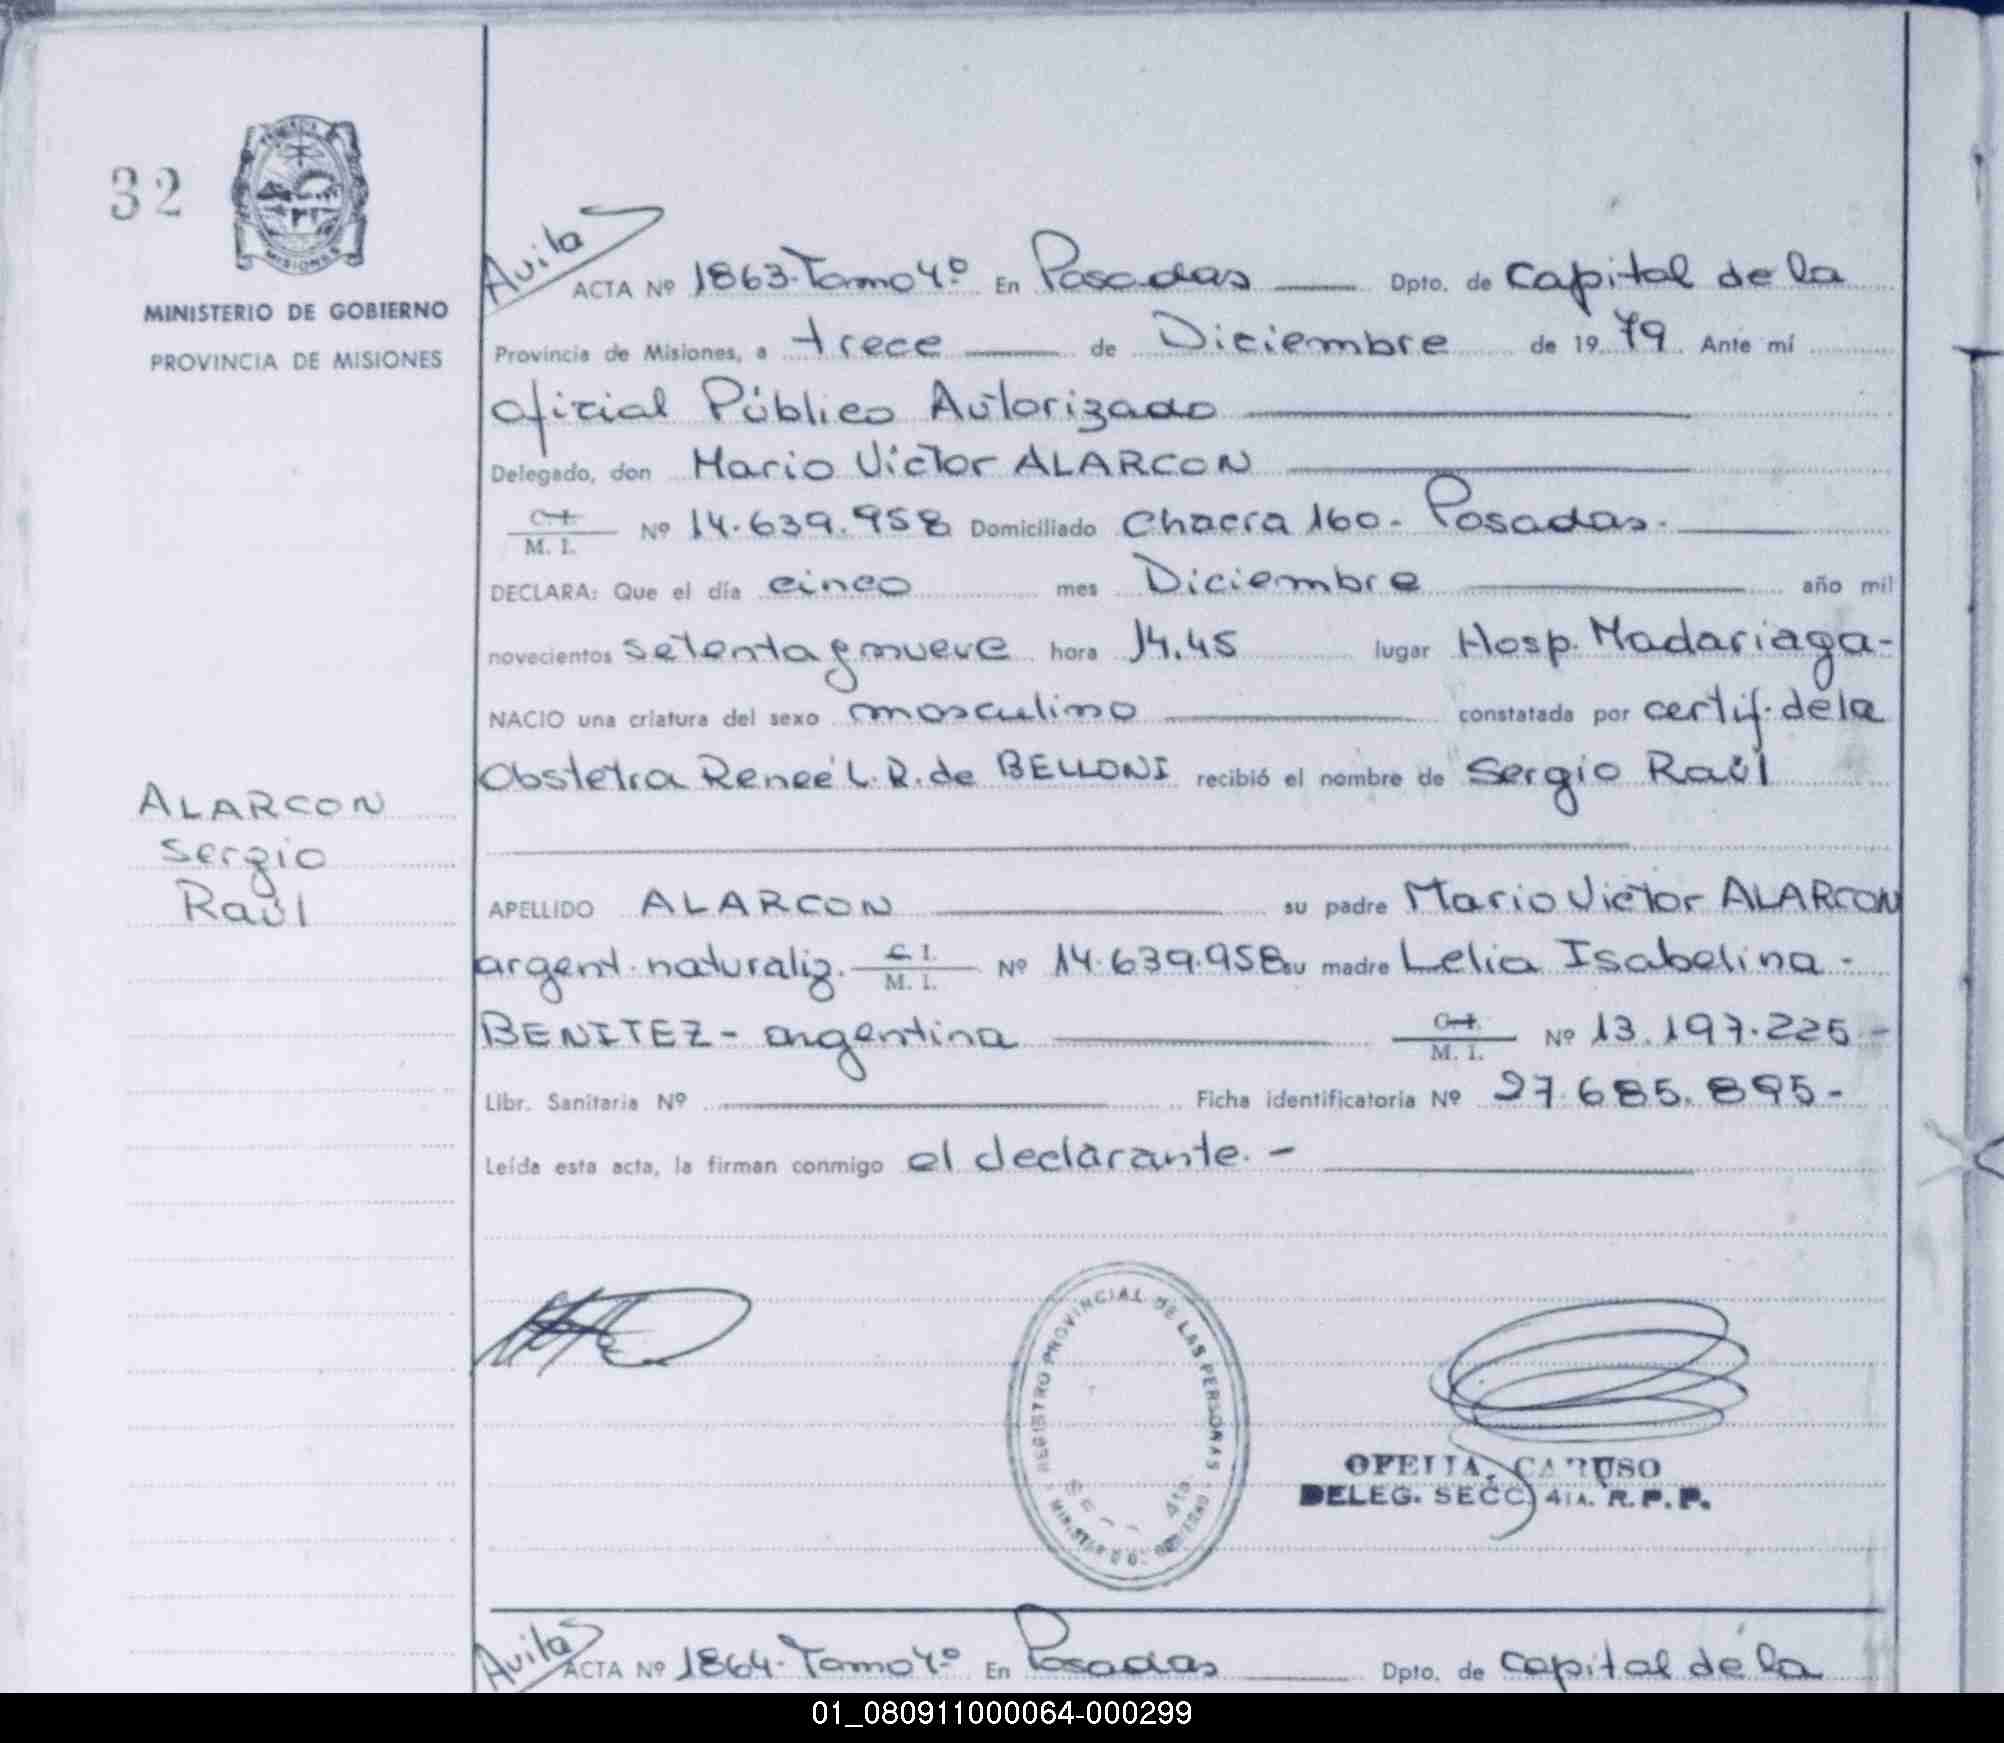 32
PROVINCIA
MISIONES
MINISTERIO DE GOBIERNO
PROVINCIA DE MISIONES
ALARCON
Sergio
Raúl
Avila
ACTA Nº 1863-Tomo 4º En Posadas Dpto. de Capital de la
Provincia de Misiones, a trece de Diciembre de 1979 Ante mí
Oficial Público Autorizado
Delegado, don Mario Victor ALARCON
C. I. / M. I. Nº 14.639.958 Domiciliado Chacra 160 - Posadas.
DECLARA: Que el día cinco mes Diciembre año mil
novecientos setenta y nueve hora 14.45 lugar Hosp. Madariaga-
NACIO una criatura del sexo masculino constatada por certif. de la
Obstetra Reneé L. R. de BELLONI recibió el nombre de Sergio Raúl
APELLIDO ALARCON su padre Mario Victor ALARCON
argent. naturaliz. C. I. / M. I. Nº 14.639.958 su madre Lelia Isabelina -
BENITEZ - argentina C. I. / M. I. Nº 13.197.225 -
Libr. Sanitaria Nº Ficha identificatoria Nº 27.685.895-
Leída esta acta, la firman conmigo el declarante. -
REGISTRO PROVINCIAL DE LAS PERSONAS
4ta.
OFELIA CARUSO
DELEG. SECC. 4TA. R.P.P.
Avila
ACTA Nº 1864-Tomo 4º En Posadas Dpto. de Capital de la
01_080911000064-000299